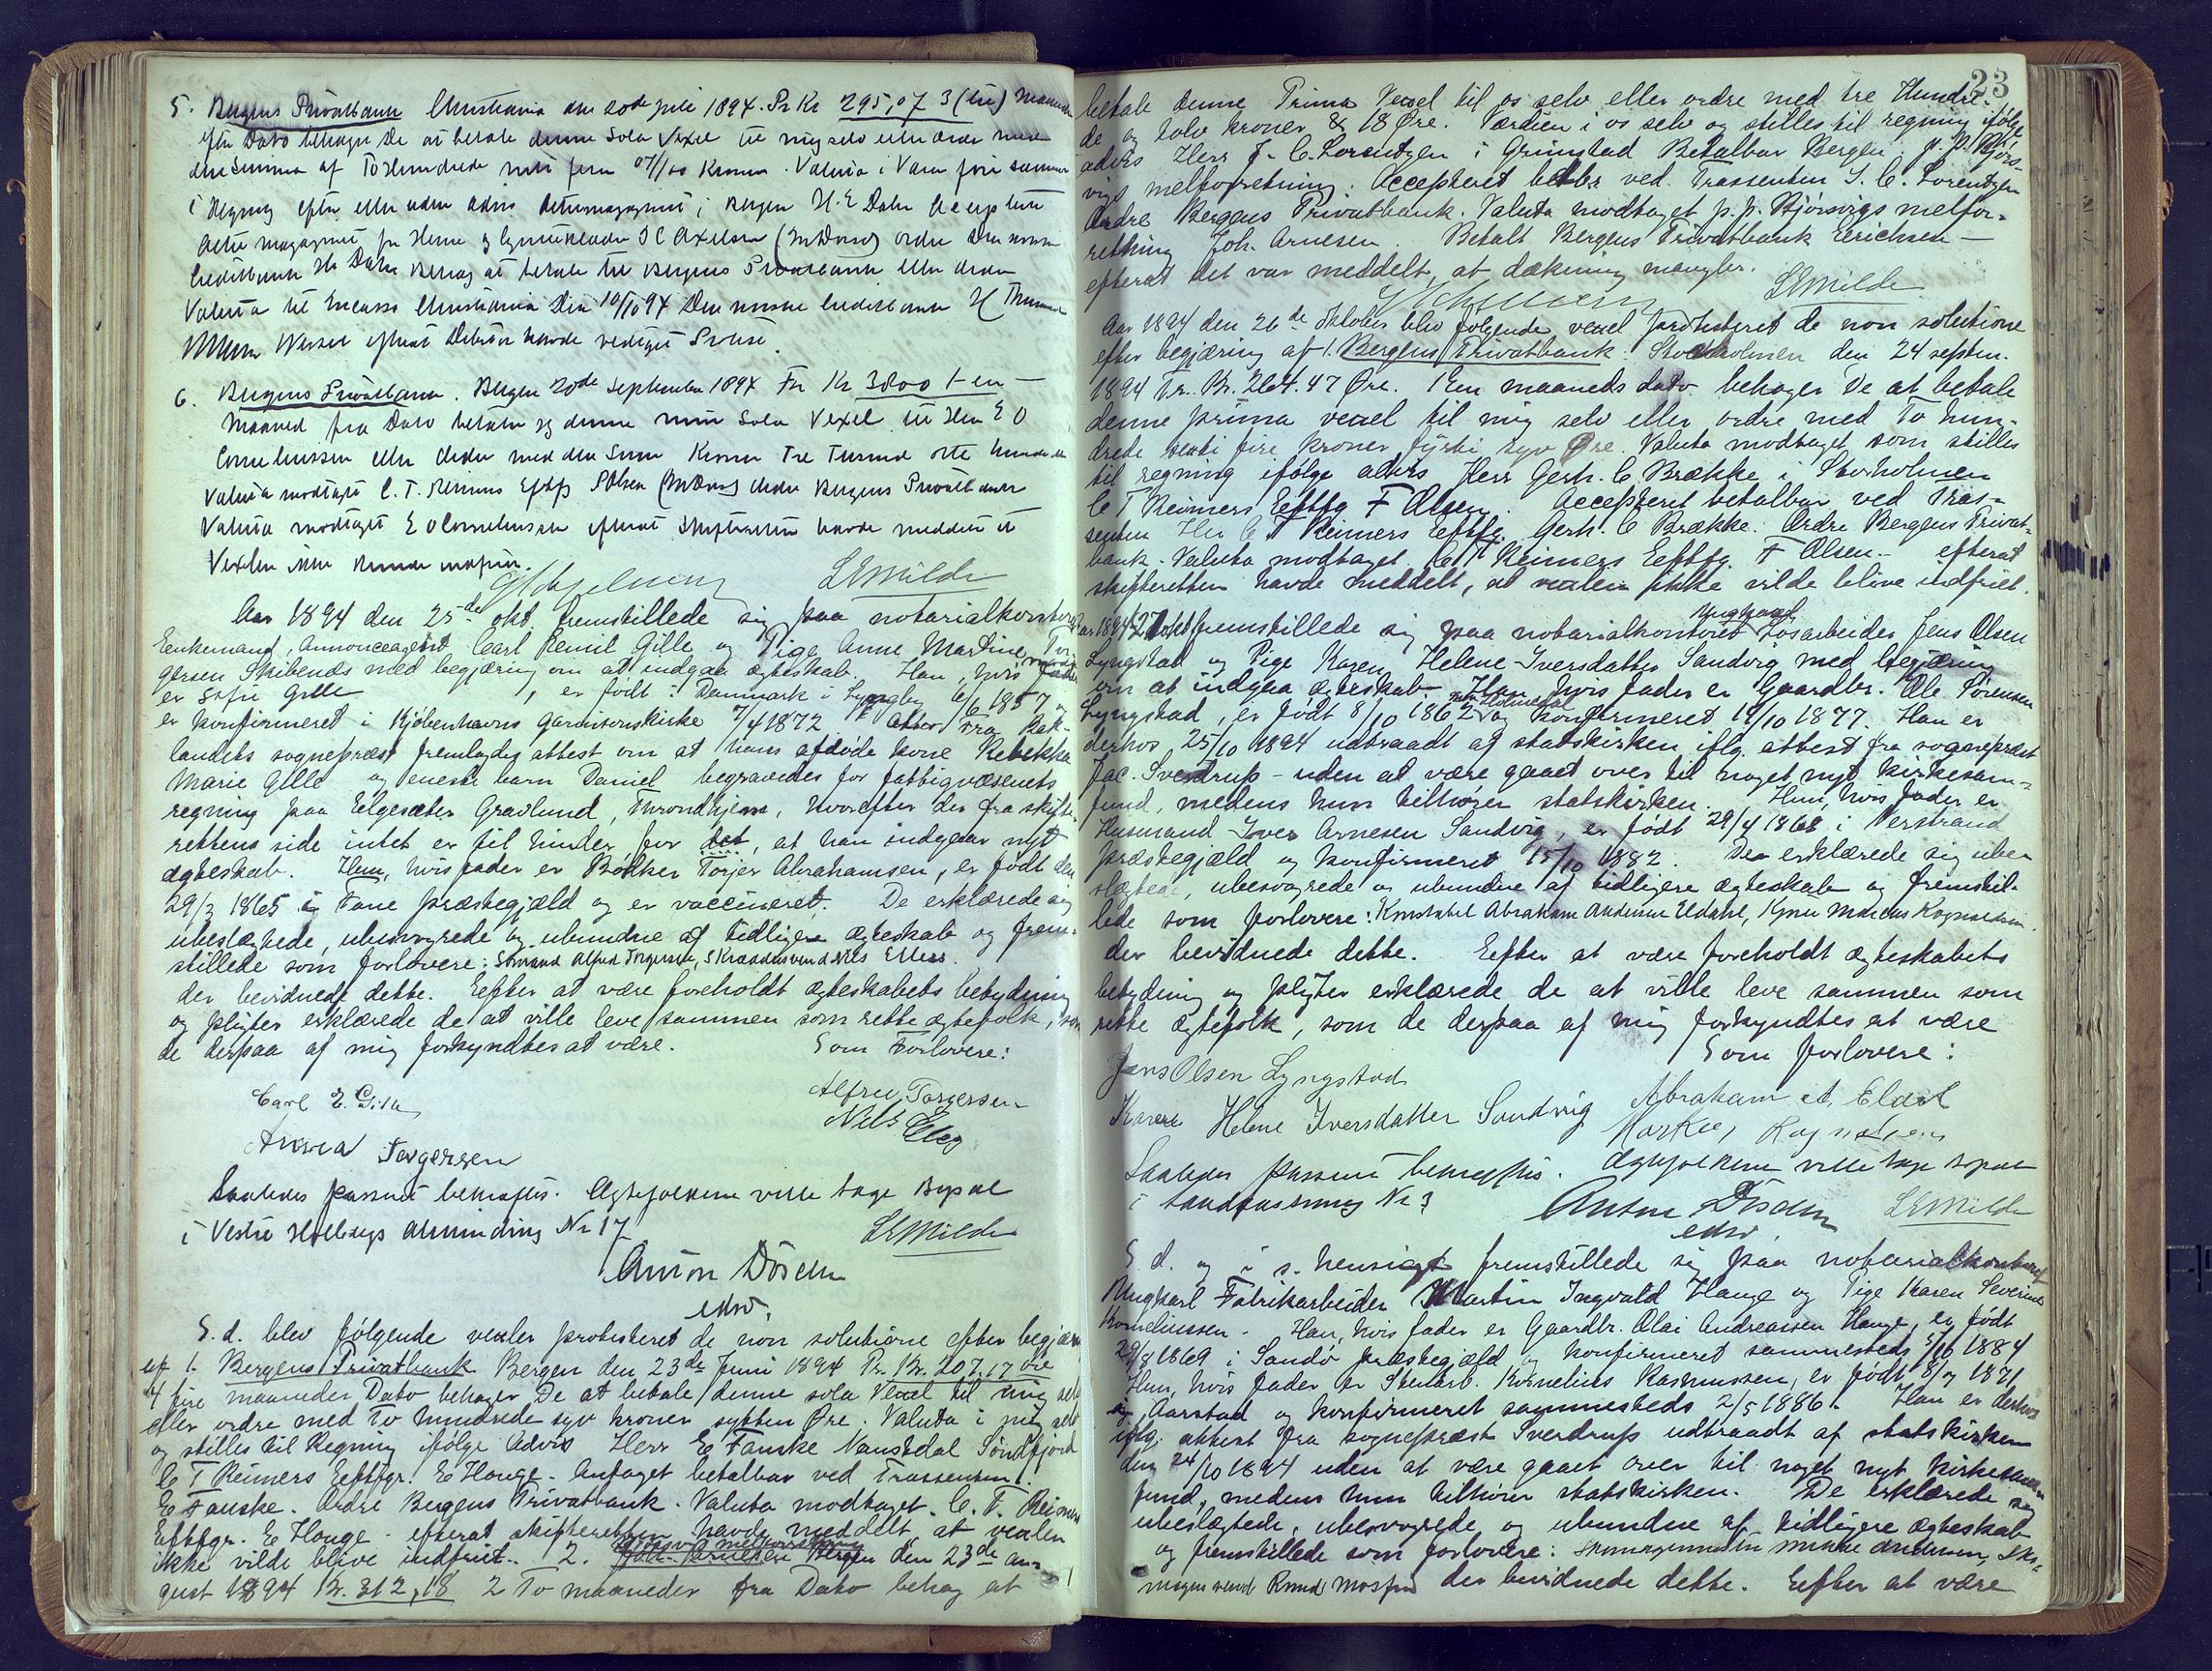 5. Bergens Privatbank Christiania den 20de juli 1894. Pr Kr 295,07 3 (tre) Maaneder
efter Dato behager De at betale denne Sola Vexel til mig selv eller ordre med
den Summa af To Hundrede niti fem 07/100 Kroner. Valuta i Varer föres sammen
i Regning efter eller uden advis i Bergen H. E Dahn Accepteret
ordre Den norske
Creditbank Behag at betale til Bergens Privatbank eller ordre
Valuta til Incasso Christiania Den 10/10 94 Den norske Creditbank
efterat Debitor havde vedtaget Protest.
6. Bergens Privatbank. Bergen 20de September 1894 For Kr 3800 1 en —
Maaned fra Dato betaler jeg denne min Sola Vexel til Herr E O
Corneliussen eller Ordre med den Sum Kroner Tre Tusind otte hundrede
Valuta modtaget C. T. Reimers Eftf F Olsen Ordre Bergens Privatbank
Valuta modtaget E O Corneliussen efterat Skifteretten havde meddelt at
Vexlen ikke kunde indfries.
LEMilde
Aar 1894 den 25de okt. fremstillede sig paa notarialkontoret
Enkemand, Annonceagent Carl Remil Gille og Pige Anne Martine Tor-
gersen Skibenes med begjæring om at indgaa ægteskab. Han, hvis fader
er Sofus Gille, er født i Danmark i Lyngby 6/6 1857 og
er konfirmeret i Kjøbenhavns Garnisonskirke 7/4 1872. Fra Bak-
landets sognepræst fremlagdes attest om at hans afdøde kone Rebekka
Marie Gille og eneste barn Daniel begravedes for fattigvæsenets
regning paa Elgesæter Gravlund, Throndhjem, hvorefter der fra skifte-
rettens side intet er til hinder for det, at han indgaar nyt
ægteskab. Hun, hvis fader er Bødker Torjer Abrahamsen, er født den
29/3 1865 i Fane præstegjæld og er vaccineret. De erklærede sig
ubeslægtede, ubesvogrede og ubundne af tidligere ægteskab og frem-
stillede som forlovere: Sømand Alfred Torgersen, Skræddersvend Nils Ellers.
der bevidnede dette. Eefter at være foreholdt ægteskabets betydning
og pligter erklærede de at ville leve sammen som rette ægtefolk, som
de derpaa af mig forkyndtes at være.
Som Forlovere:
Carl E. Gille
Alfred Torgersen
Nils
Anna Torgersen
Saaledes passeret bekræftes. Ægtefolkene ville tage Bopæl
i Vestre Holbergs Alminding No 17
LEMilde
Anton Dösen
edsv.
S. d. blev følgende vexler protesteret de non solutione efter begjæring
af 1. Bergens Privatbank Bergen den 23de Juni 1894 Pr. Kr. 207,17 øre
4 fire maaneder Dato behager De at betale denne sola Vexel til mig selv
eller ordre med To hundrede syv kroner sytten Øre. Valuta i mig selv
og stilles til Regning ifølge Advis Herr E Fauske Naustdal Søndfjord
C T Reimers Eeftfgr. E Hauge. Antaget betalbar ved Trassenten.
E Fauske. Ordre Bergens Privatbank. Valuta modtaget. C. T. Reimers
Eeftfgr. E Hauge — efterat skifteretten havde meddelt, at vexlen
ikke vilde blive indfriet. 2. Bjørsvigs melforretning Bergen den 23de au-
gust 1894 Kr. 312,18 2 To maaneder fra Dato behag at
23
betale denne Prima Vexel til os selv eller ordre med tre Hundre-
de og tolv kroner & 18 Øre. Værdien i os selv og stilles til regning ifølge
advis Herr J. C. Lorentzen i Grimstad Betalbar Bergen. p. p. Bjørs-
vigs melforretning. Accepteret betbr ved Trassenten J. C. Lorentzen
Ordre Bergens Privatbank. Valuta modtaget p. p. Bjørsvigs melfor-
retning Joh. Arnesen. Betalt Bergens Privatbank Erichsen —
efterat det var meddelt, at dækning mangler.
LEMilde
Aar 1894 den 26de Oktober blev følgende vexel protesteret de non solutione
efter begjæring af 1. Bergens Privatbank: Storholmen den 24 septem.
1894 Pr. Kr. 264.47 Øre. 1 En maaneds dato behager De at betale
denne prima vexel til mig selv eller ordre med To hun-
drede sexti fire kroner fyrti syv Øre. Valuta modtaget som stilles
til regning ifølge advis Herr Gerh. C Brække i Storholmen
C T Reimers Eeftfg F Olsen. Accepteret betalbar ved Tras-
senten Hr C T Reimers Eeftfg. Gerh. C Brække. Ordre Bergens Privat-
bank. Valuta modtaget C T Reimers Eeftfg. F Olsen — efterat
skifteretten havde meddelt, at vexlen ikke vilde blive indfriet.
Aar 1894 27 okt fremstillede sig paa notarialkontoret Ungkarl Losarbeider Jens Olsen
Lyngstad og Pige Karen Helene Iversdatter Sandvig med begjæring
om at indgaa ægteskab. Han, hvis fader er Gaardbr. Ole Sørensen
Lyngstad, er født 8/10 1862 og konfirmeret 14/10 1877. Han er
derhos 25/10 1894 udtraadt af statskirken iflg. attest fra sognepræst
Jac. Sverdrup — uden at være gaaet over til noget nyt kirkesam-
fund, medens hun tilhører statskirken. Hun, hvis fader er
Husmand Iver Arnesen Sandvig, er født 29/4 1868 i Verstrand
præstegjæld og konfirmeret 15/10 1882. De erklærede sig ube-
slægtede, ubesvogrede og ubundne af tidligere ægteskab og fremstil-
lede som forlovere: Konstabel Abraham Andersen Eldahl,
der bevidnede dette. Eefter at være foreholdt ægteskabets
betydning og pligter erklærede de at ville leve sammen som
rette ægtefolk, som de derpaa af mig forkyndtes at være
Som forlovere:
Jens Olsen Lyngstad
Abraham A. Eldal
Karen Helene Iversdatter Sandvig
Saaledes passeret bekræftes. Ægtefolkene ville tage bopæl
i No 3
Anton Dösen
edsv.
LEMilde
S. d. og i s. hensigt fremstillede sig paa notarialkontoret
Ungkarl Fabrikarbeider Martin Ingvald Hauge og Pige Karen Severine
Korneliussen. Han, hvis fader er Gaardbr. Olai Andreassen Hauge, er født
29/8 1869 i Sandø præstegjæld og konfirmeret sammesteds 5/10 1884
Hun, hvis fader er Stenarb. Kornelius Rasmussen, er født 8/7 1871
i Aarstad og konfirmeret sammesteds 2/5 1886. Han er derhos
iflg. attest fra sognepræst Sverdrup udtraadt af statskirken
den 24/10 1894 uden at være gaaet over til noget nyt kirkesam-
fund, medens hun tilhører statskirken. De erklærede sig
ubeslægtede, ubesvogrede og ubundne af tidligere ægteskab
og fremstillede som forlovere: Andersen, Sko-
magersvend Knud der bevidnede dette. Eefter at være